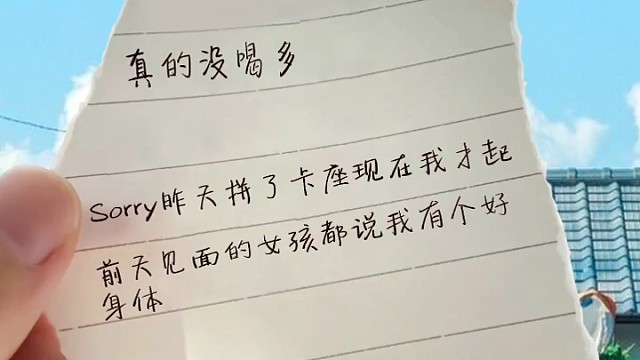 真的没喝多
Sorry昨天拼了卡座现在我才起
前天见面的女孩都说我有个好
身体